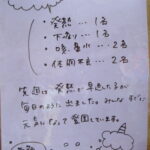 ・発熱 … 1名
・下痢 … 1名
・咳、鼻水 … 2名
・体調不良 … 2名
今週は 発熱で早退した子が
毎日のように出ました。みんな すでに
元気になって登園しています。